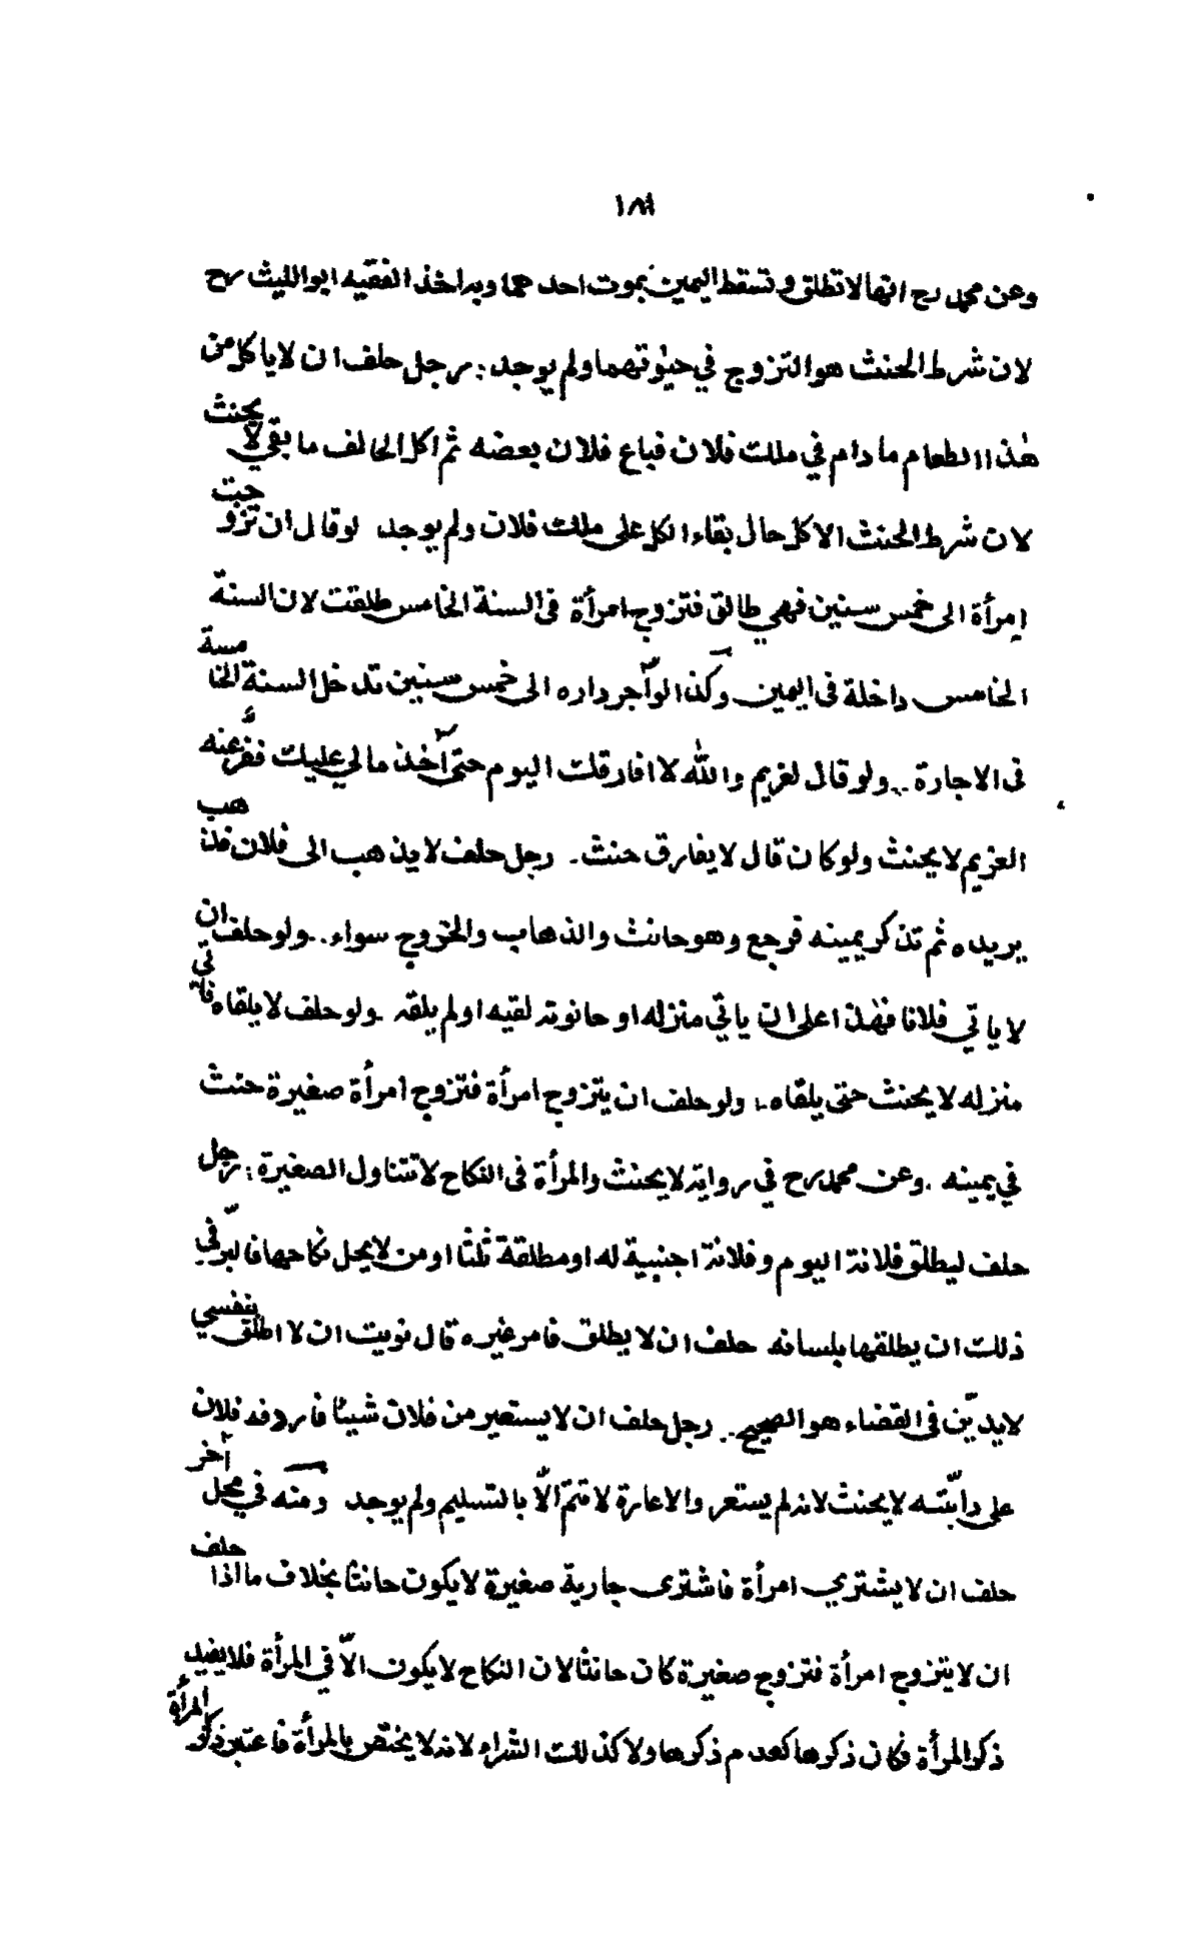 ١٨١
وعن محمد رح انها لا تطلق وتسقط اليمين بموت احدهما وبه اخذ الفقيه ابو الليث رح
لان شرط الحنث هو التزوج في حيوتهما ولم يوجد : رجل حلف ان لا ياكل من
هذا الطعام ما دام في ملك فلان فباع فلان بعضه ثم اكل الحالف ما بقي لا يحنث
لان شرط الحنث الاكل حال بقاء الكل على ملك فلان ولم يوجد لو قال ان تزوجت
امرأة الى خمس سنين فهي طالق فتزوج امرأة في السنة الخامس طلقت لان السنة
الخامس داخلة في اليمين وكذا لو آجر داره الى خمس سنين تدخل السنة الخامسة
في الاجارة .. ولو قال لغريم والله لا افارقك اليوم حتى آخذ مالي عليك ففر عنه
الغريم لا يحنث ولو كان قال لا يفارق حنث . رجل حلف لا يذهب الى فلان فذهب
يريده ثم تذكر يمينه فرجع وهو حانث والذهاب والخروج سواء .. ولو حلف ان
لا ياتي فلانا فهذا على ان ياتي منزله او حانوته لقيه او لم يلقه . ولو حلف لا يلقاه فاتى
منزله لا يحنث حتى يلقاه .. ولو حلف ان يتزوج امرأة فتزوج امرأة صغيرة حنث
في يمينه . وعن محمد رح في رواية لا يحنث والمرأة في النكاح لا تتناول الصغيرة : رجل
حلف ليطلق فلانة اليوم وفلانة اجنبية له او مطلقة ثلثا او من لا يحل نكاحها فالبرّ في
ذلك ان يطلقها بلسانه حلف ان لا يطلق فامر غيره قال نويت ان لا اطلق بنفسي
لا يديّن في القضاء هو الصحيح .. رجل حلف ان لا يستعير من فلان شيئا فاردفه فلان
على دابّته لا يحنث لانه لم يستعر والاعارة لا تتمّ الّا بالتسليم ولم يوجد ومنه في محل آخر
حلف ان لا يشتري امرأة فاشترى جارية صغيرة لا يكون حانثا بخلاف ما اذا حلف
ان لا يتزوج امرأة فتزوج صغيرة كان حانثا لان النكاح لا يكون الّا في المرأة فلا يفيد
ذكر المرأة فكان ذكرها كعدم ذكرها ولا كذلك الشراء لانه لا يختص بالمرأة فاعتبر ذكر المرأة